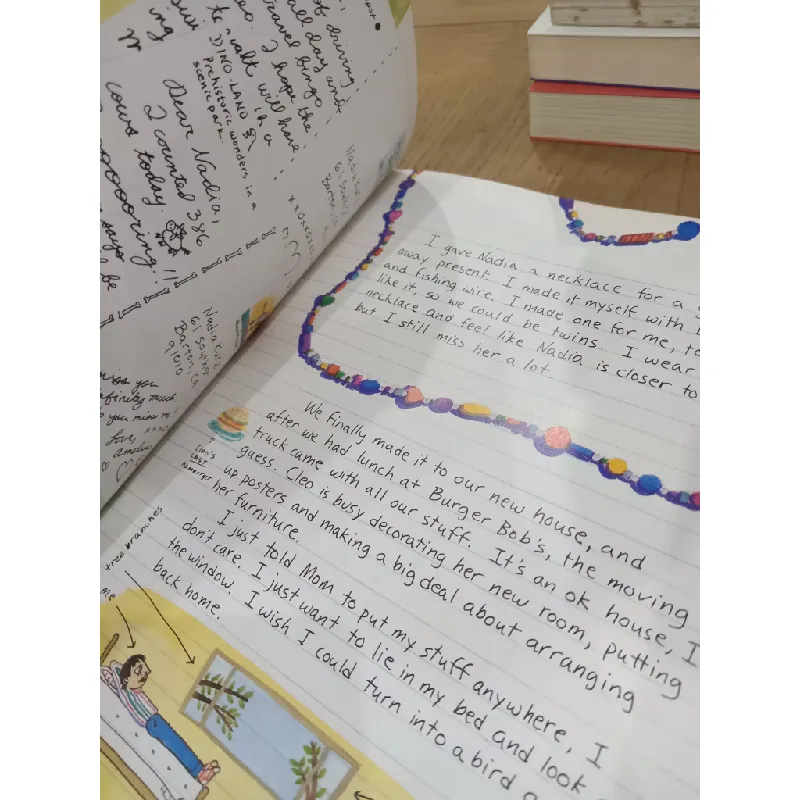 of driving,
all day and
travel bingo.
I hope the
walk will have
in a
DINO-LAND
Prehistoric wonders in a
scenic park.
Dear Nadia,
I counted 386
cows today.
!!
says
be
Nadia
61 South
Barton,
Nadia
61
Barton, Ca
91010
you
much
you miss me
Love,
Amelia
I gave Nadia a necklace for a
away present. I made it myself with
and fishing wire. I made one for me, to
like it, so we could be twins. I wear
necklace and feel like Nadia is closer to
but I still miss her a lot.
We finally made it to our new house, and
after we had lunch at Burger Bob's, the moving
truck came with all our stuff. It's an ok house, I
guess. Cleo is busy decorating her new room, putting
up posters and making a big deal about arranging
her furniture.
Cleo's
LAST
hamburger
I just told Mom to put my stuff anywhere, I
don't care. I just want to lie in my bed and look
the window. I wish I could turn into a bird
back home.
tree branches
me